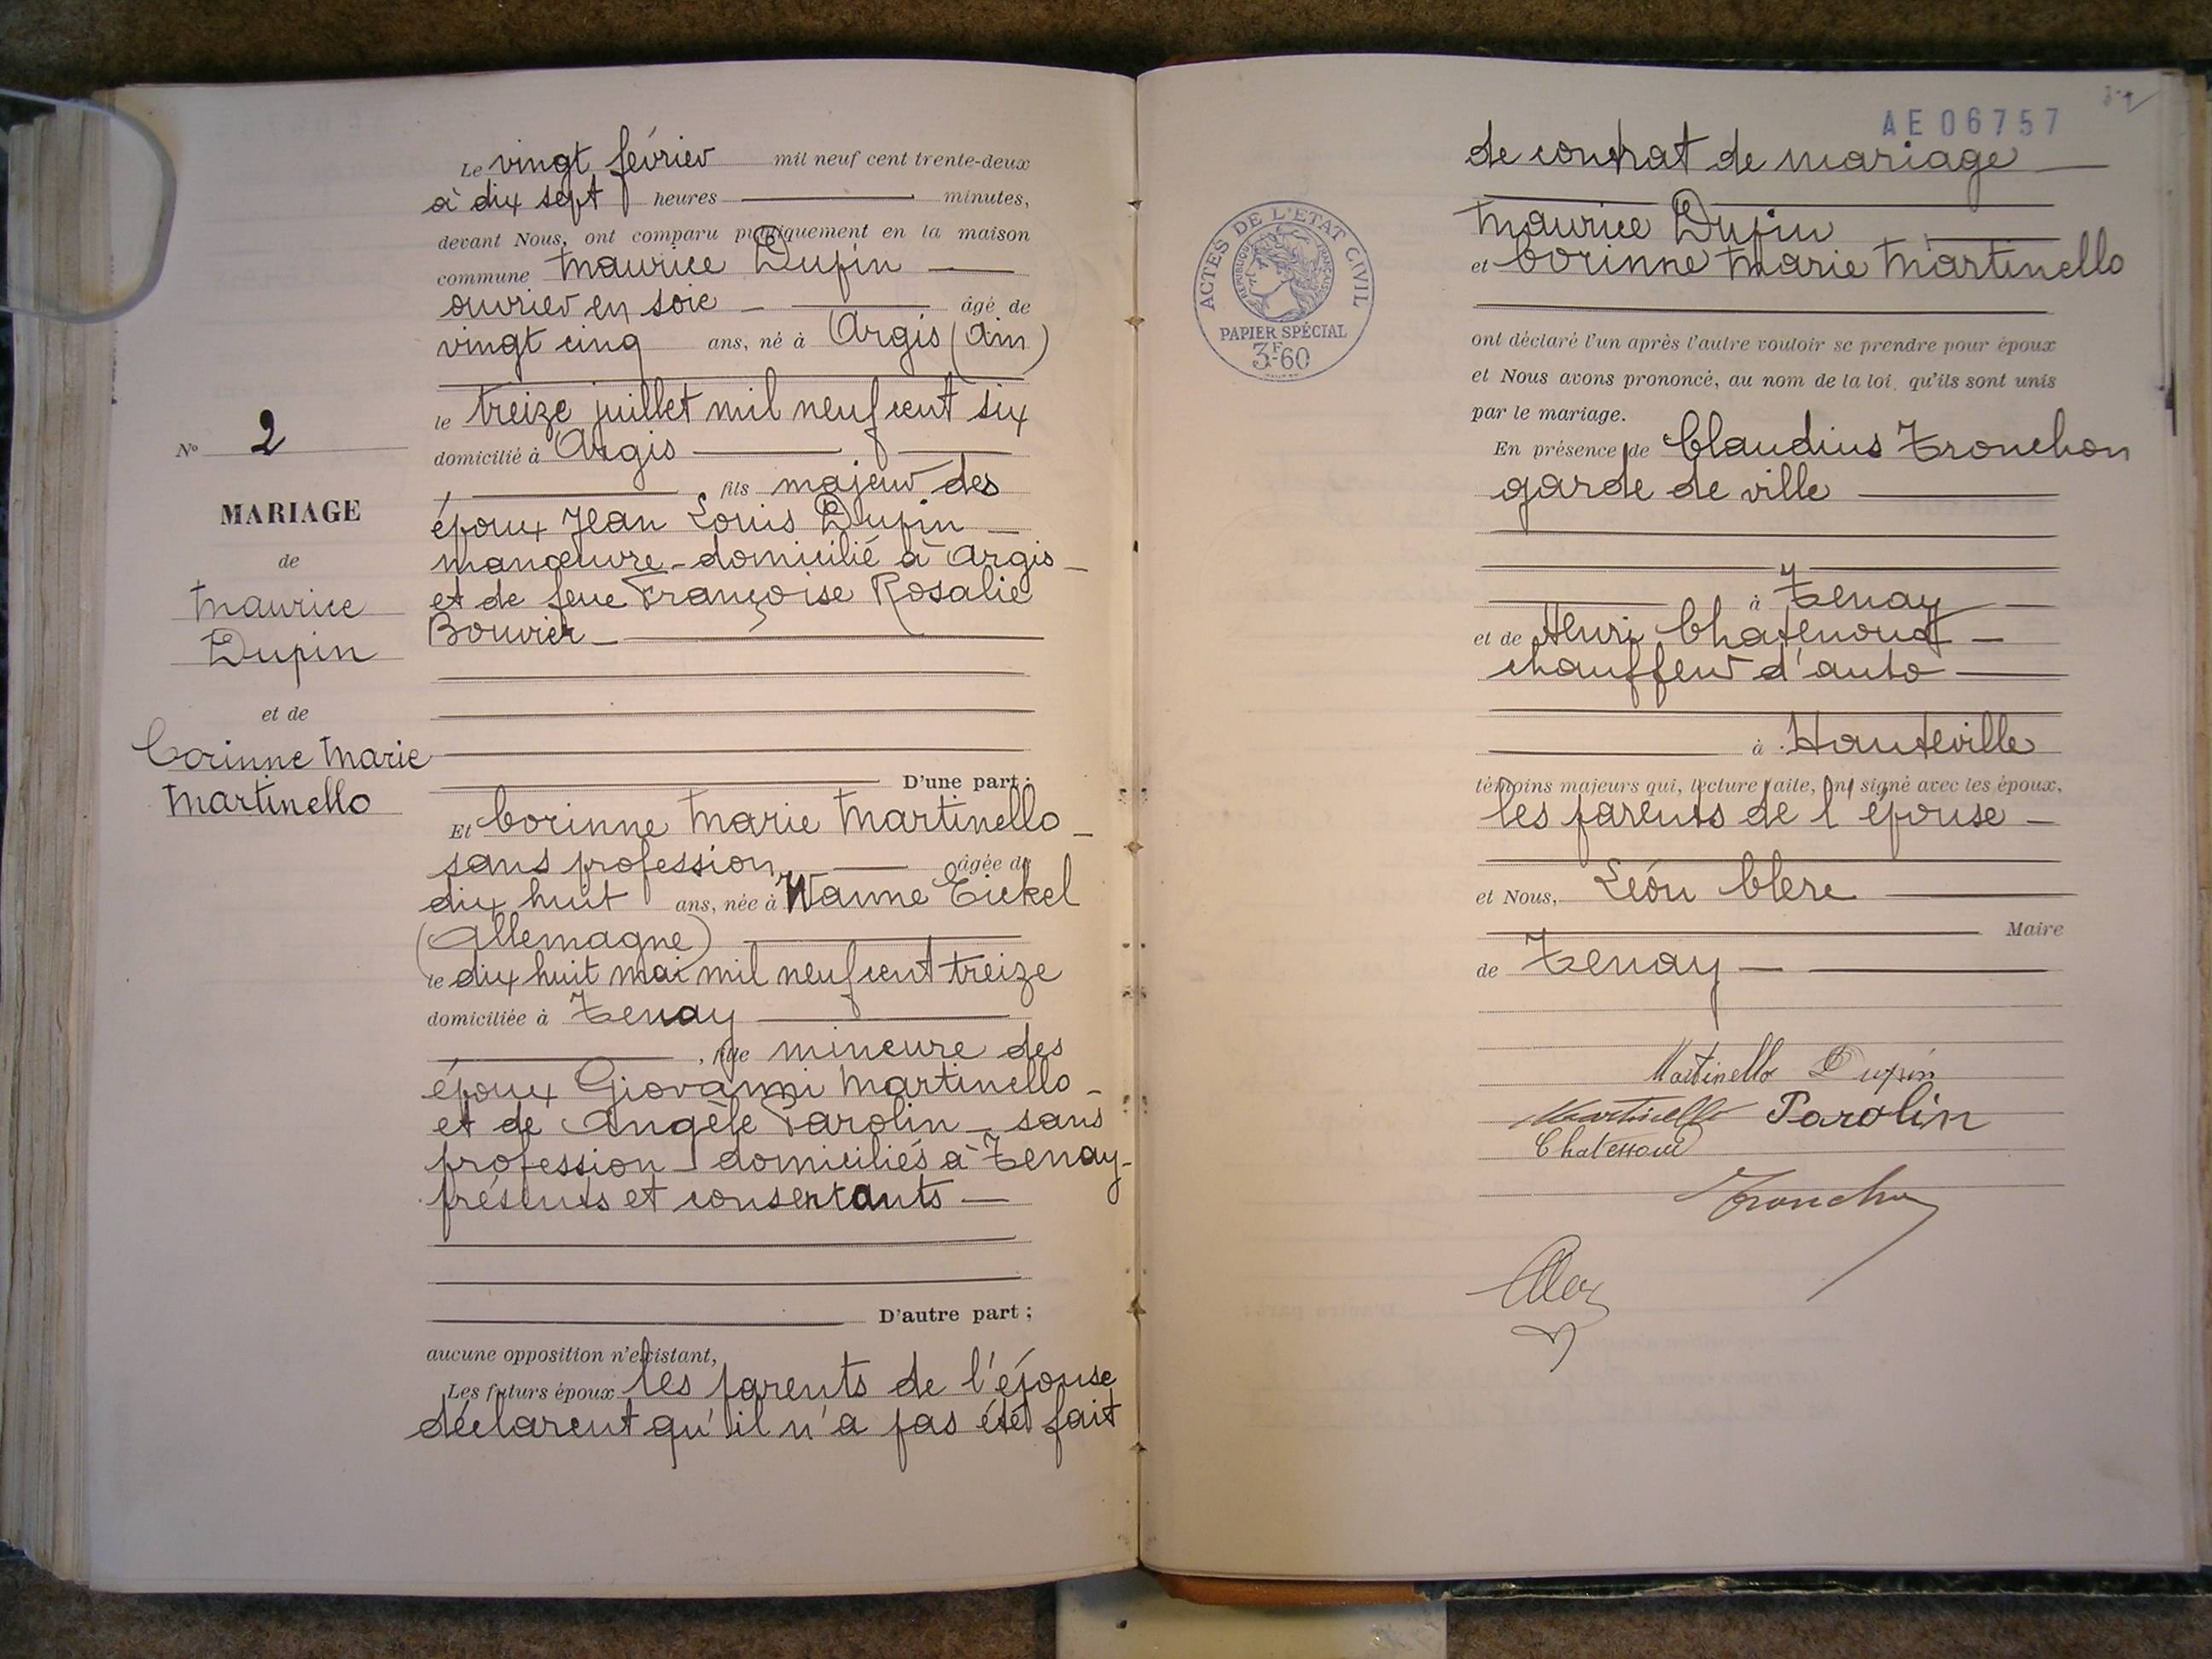 Le vingt février mil neuf cent trente-deux
à dix sept heures minutes,
devant Nous, ont comparu publiquement en la maison
commune Maurice Dupin
ouvrier en soie âgé de
vingt cinq ans, né à Argis (Ain)
le treize juillet mil neuf cent six
domicilié à Argis
, fils majeur des
époux Jean Louis Dupin
manœuvre - domicilié à Argis
et de feue Françoise Rosalie
Bouvier
D'une part ;
Et Corinne Marie Martinello
sans profession, âgée de
dix huit ans, née à Wanne Eickel
(Allemagne)
le dix huit mai mil neuf cent treize
domiciliée à Tenay
, fille mineure des
époux Giovanni Martinello
et de Angèle Parolin - sans
profession - domiciliés à Tenay -
présents et consentants
D'autre part ;
aucune opposition n'existant,
Les futurs époux les parents de l'épouse
déclarent qu'il n'a pas été fait
No 2
MARIAGE
de
Maurice
Dupin
et de
Corinne Marie
Martinello
AE06757
de contrat de mariage
Maurice Dupin
et Corinne Marie Martinello
ont déclaré l'un après l'autre vouloir se prendre pour époux
et Nous avons prononcé, au nom de la loi, qu'ils sont unis
par le mariage.
En présence de Claudius Tronchon
garde de ville
à Tenay
et de Henri Chatenoud
chauffeur d'auto
à Hauteville
témoins majeurs qui, lecture faite, ont signé avec les époux,
les parents de l'épouse
et Nous, Léon Clerc
Maire
de Tenay
ACTES DE L'ETAT CIVIL
REPUBLIQUE FRANÇAISE
PAPIER SPÉCIAL
3F60
Martinello Dupin
Martinello Parolin
Chatenoud
Tronchon